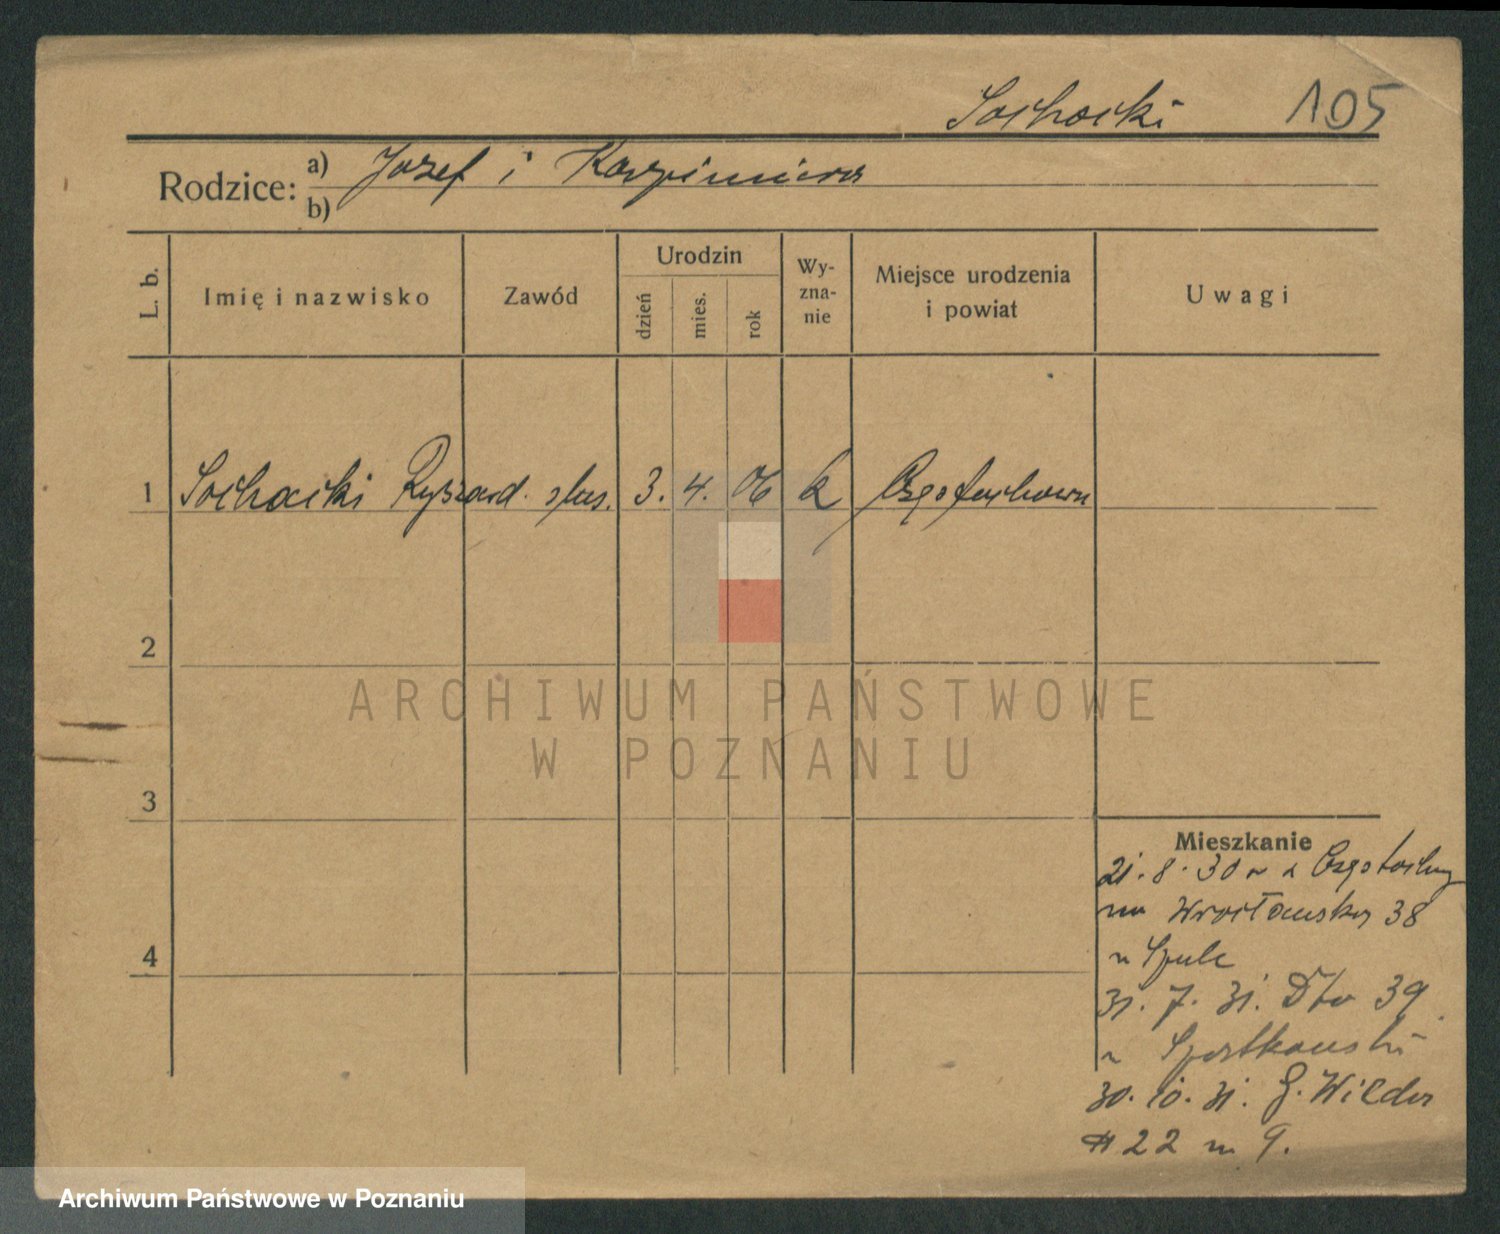 Sochacki 105
Rodzice: a) Józef i Kazimiera
b)
L. b.
Imię i nazwisko
Zawód
Urodzin
dzień
mies.
rok
Wy-
zna-
nie
Miejsce urodzenia
i powiat
Uwagi
1 Sochacki Ryszard. ślus. 3. 4. 06 k Częstochowa
2
3
4
Mieszkanie
21. 8. 30 z Częstochowy
na Wrocławska 38
u Szulc
31. 7. 31. Dto 39
u
30. 10. 31. G. Wilda
22 m 9.
ARCHIWUM PAŃSTWOWE
W POZNANIU
Archiwum Państwowe w Poznaniu